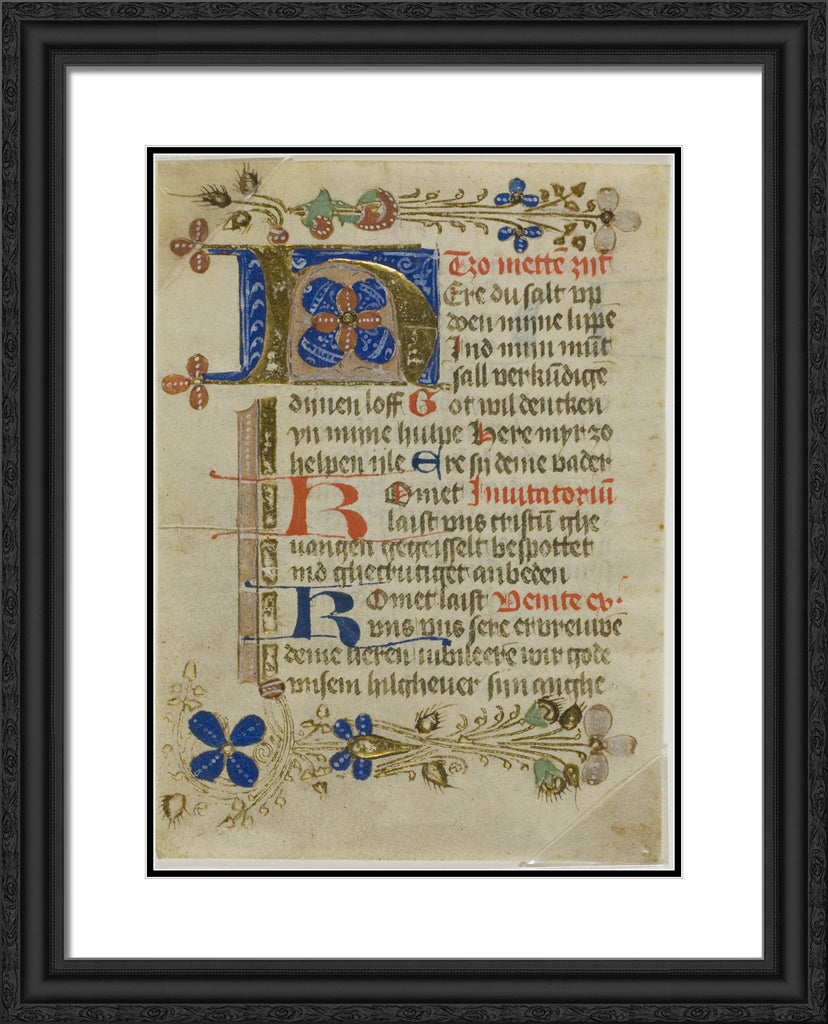 Tzo mettē zijt
HEre du salt vp
doen mijne lippe
Ind mijn mūt
sall verkūdige
dijnen loff Got wil dencken
yn mijne hulpe Here myr zo
helpen ijle Ere sij deme vader
Komet Inuitatoriū
laist vns cristū ghe
uangen gegeisselt bespottet
ind ghecrutiget anbeden
Komet laist Venite ex.
vns vns sere ervreuwē
deme heren iubileerē wir gode
vnsem